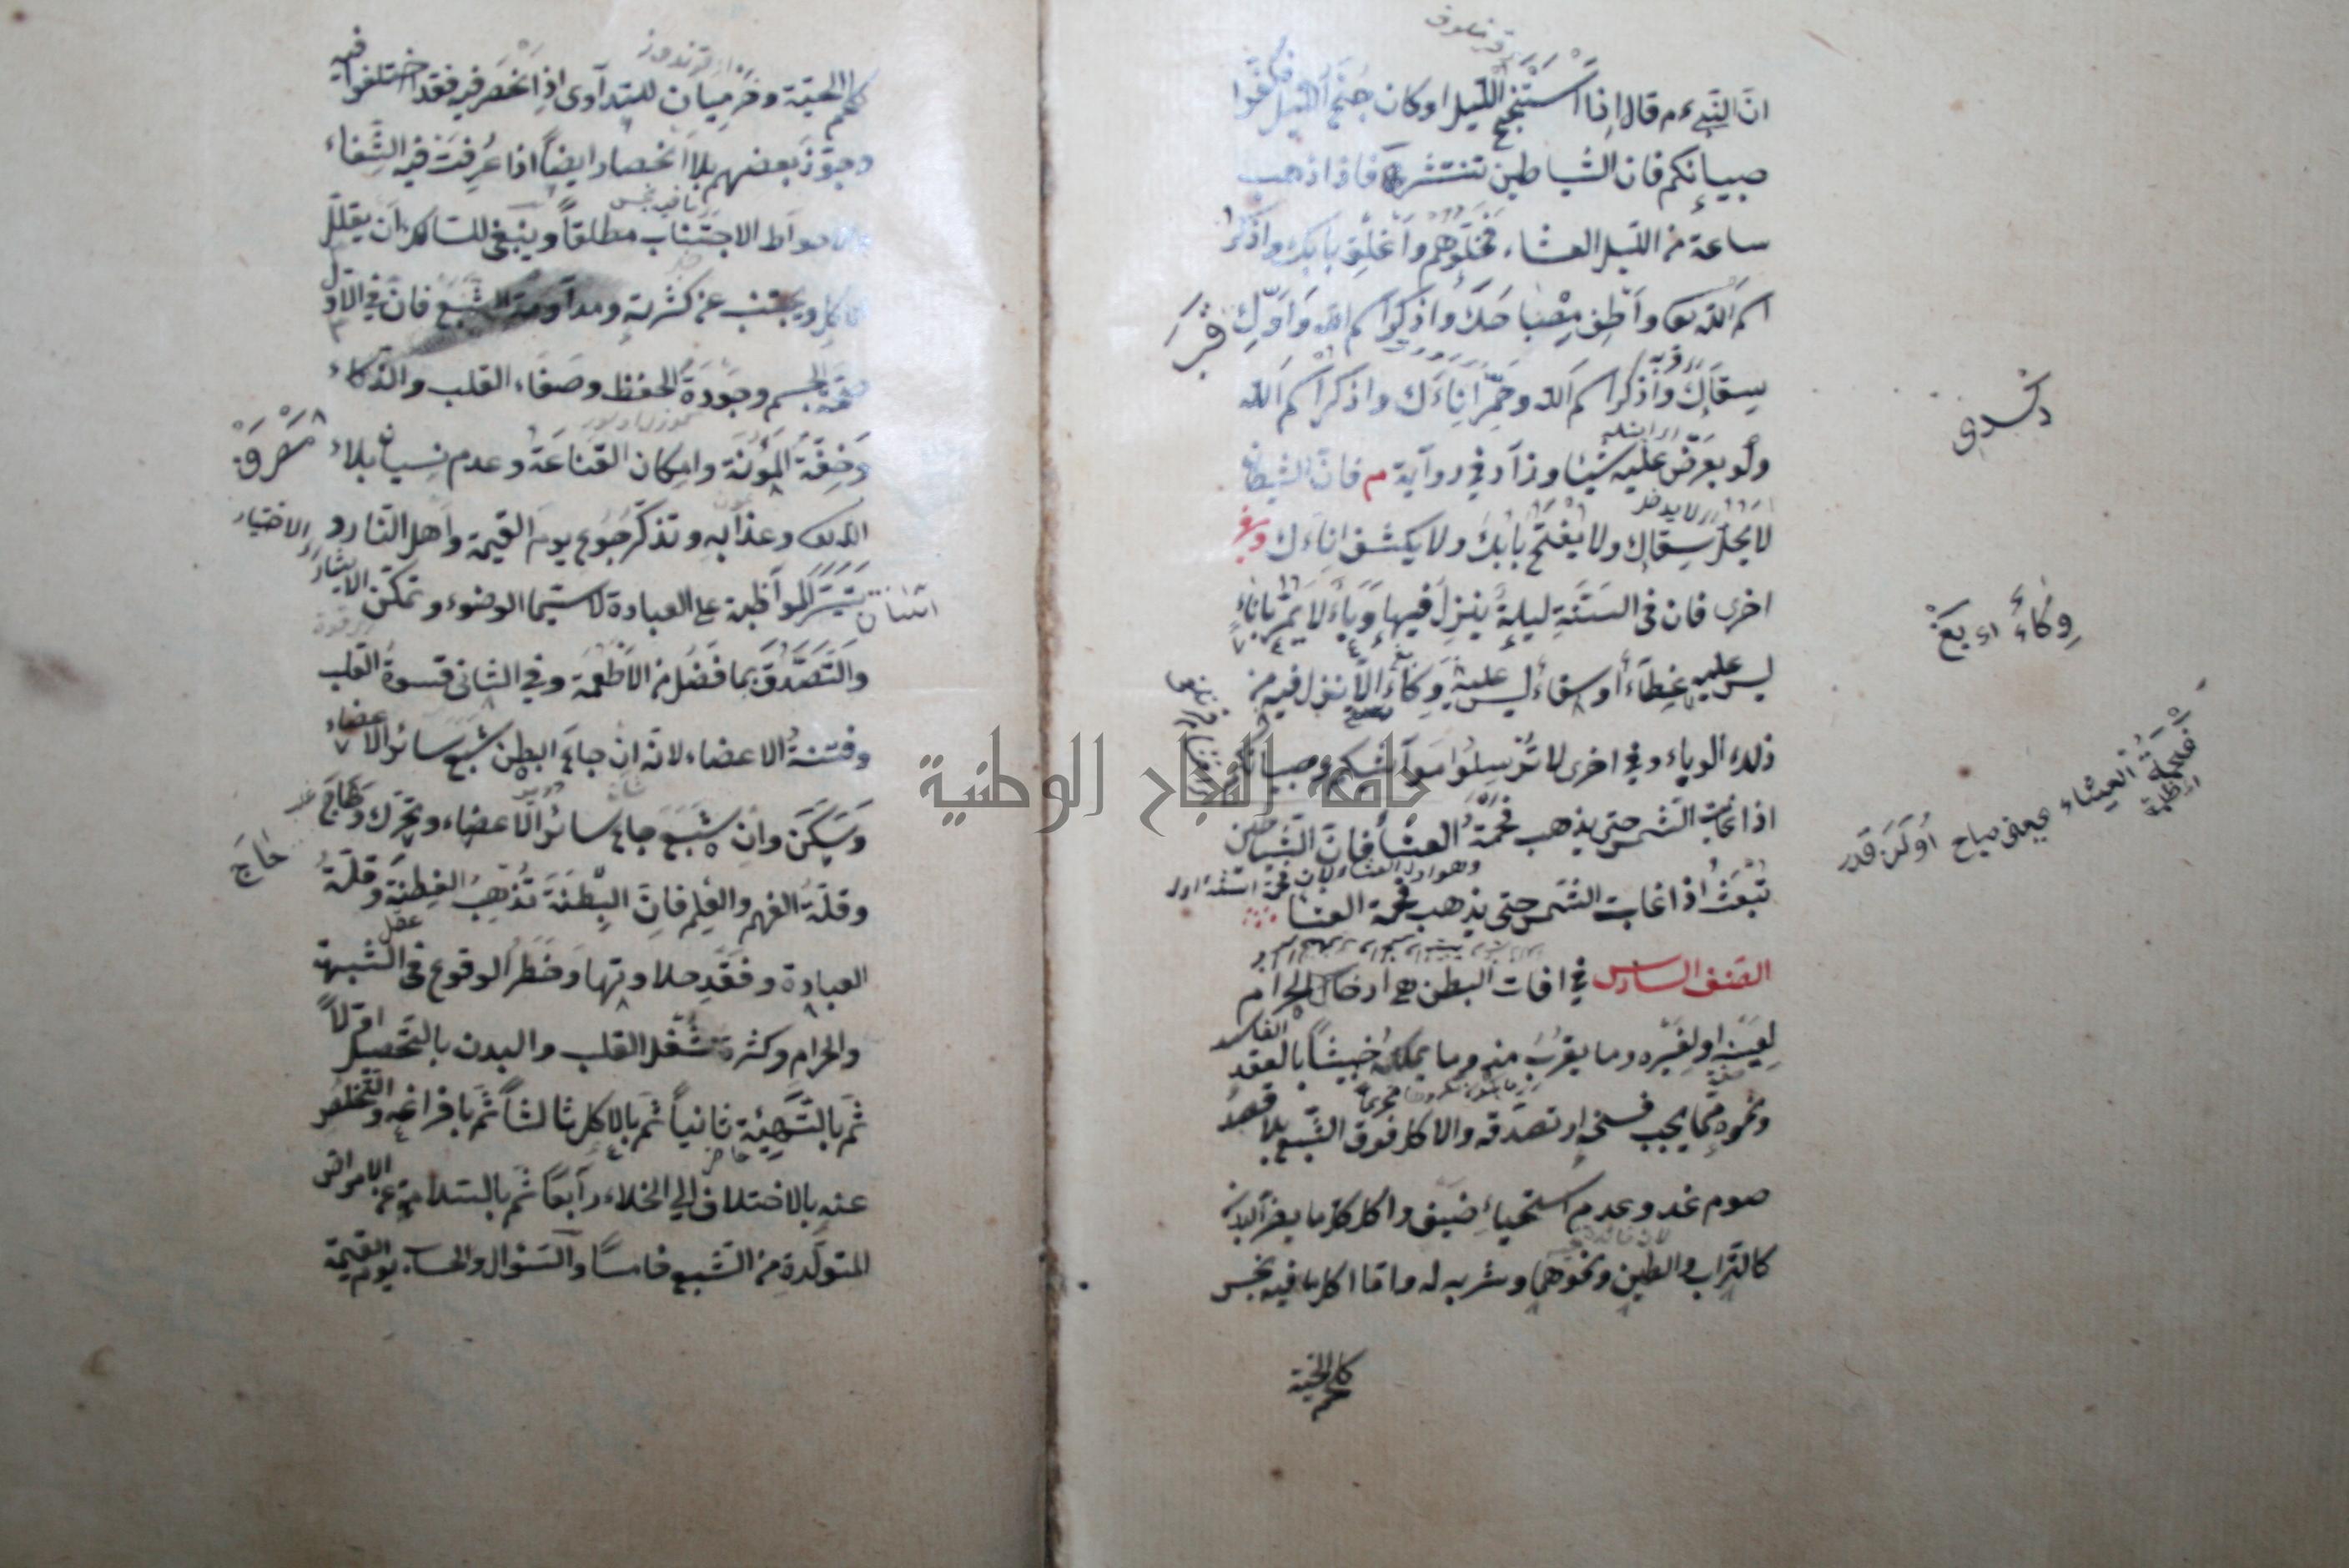 ان النبي ءم قال اذا استنجح الليل او كان جنح الليل فكفوا
صبيانكم فان الشياطين تنتشر فاذا ذهب
ساعة من الليل العشاء فخلوهم واغلق بابك واذكر
اسم الله تعا واطف مصباحك واذكر اسم الله واوك
سقاءك واذكر اسم الله وخمر اناءك واذكر اسم الله
ولو بعرض عليه شيئا وزاد في رواية م فان الشيطان
لا يحل سقاك ولا يفتح بابك ولا يكشف اناءك وفي
اخرى فان في السنة ليلة ينزل فيها وباء لا يمر باناء
ليس عليه غطاء أو سقاء ليس عليه وكاء الا ينزل فيه من
ذلك الوباء وفي اخرى لا ترسلوا مواشيكم وصبيانكم
اذا غابت الشمس حتى يذهب فحمة العشا فان الشياطين
تبعث اذا غابت الشمس حتى يذهب فحمة العشا
الصنف السادس في افات البطن هي ادخال الحرام
لعينه او لغيره وما يقرب منه وما يملك خبيثا بالعقد الفاسد
ونحوه مما يجب فسخه او تصدقه والاكل فوق الشبع بلا قصد
صوم غد وعدم استحياء ضيف واكل كل ما يضر البدن
كالتراب والطين ونحوهما وشربه له واما اكل ما فيه نجس
كلحم الحية
وكاء
جامعة النجاح الوطنية
كلحم الحية وخرء ميان للتداوى اذا انحصر فيه فقد اختلفوا فيه
وجوز بعضهم بلا انحصار ايضا اذا عرفت فيه الشفاء
والاحواط الاجتناب مطلقا وينبغي للسالك ان يقلل
الاكل ويجتنب عن كثرته ومداومة الشبع فان في الاول
صحة الجسم وجودة الحفظ وصفاء القلب والذكاء
وخفة المؤنة وامكان القناعة وعدم نسيان بلاء
الله تعا وعذابه وتذكر جوع يوم القيمة واهل النار و
تيسر المواظبة على العبادة لا سيما الوضوء وتمكن الايثار
والتصدق بما فضل من الاطعمة وفي الثانى قسوة القلب
وفتنة الاعضاء لانه ان جاع البطن شبع سائر الاعضاء
وسكن وان شبع جاع سائر الاعضاء وتحرك وهاج
وقلة الفهم والعلم فان البطنة تذهب الفطنة وقلة
العبادة وفقد حلاوتها وخطر الوقوع في الشبهة
والحرام وكثرة شغل القلب والبدن بالتحصيل اولا
ثم بالتهيئة ثانيا ثم بالاكل ثالثا ثم بافراغه والتخلص
عنه بالاختلاف الي الخلاء رابعا ثم بالسلامة عن الامراض
المتولدة من الشبع خامسا والسئوال والحساب يوم القيمة